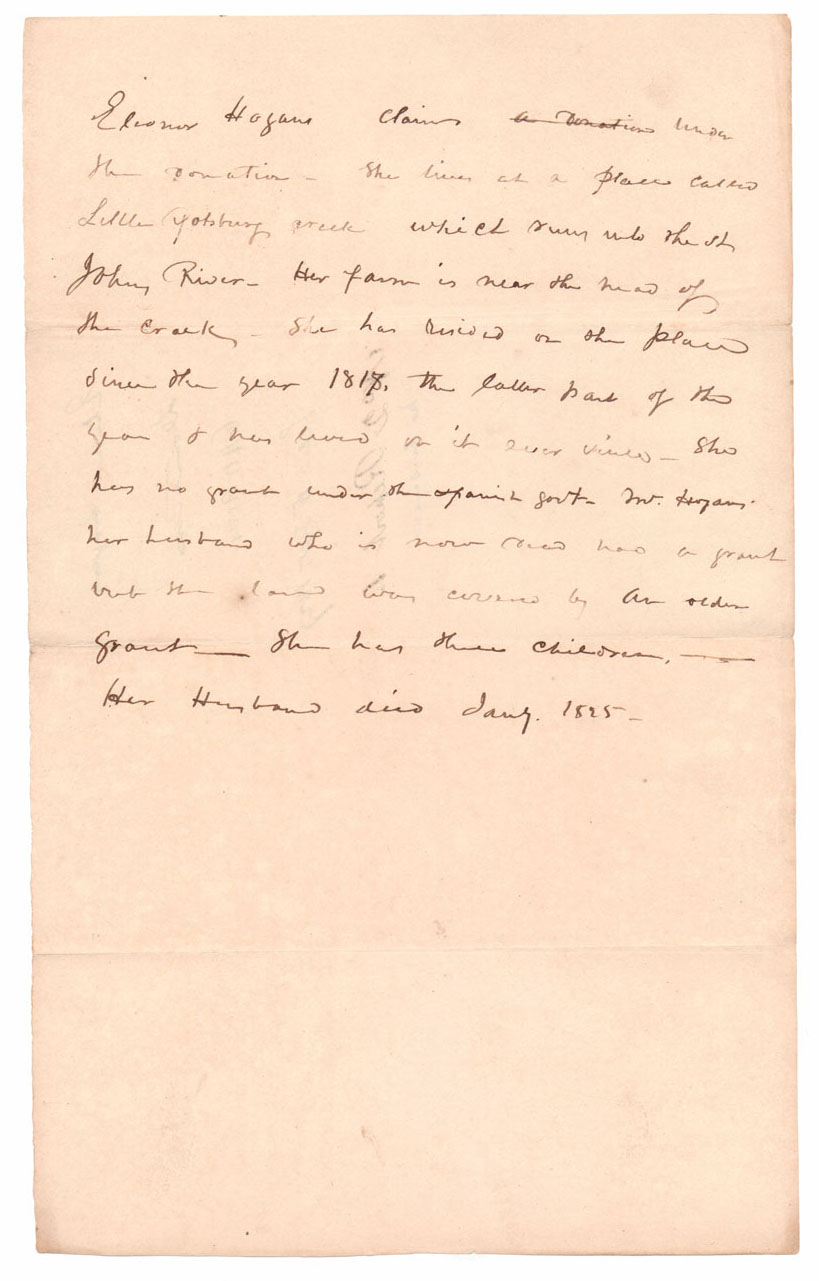 Eleonor Hogans claims a donation under
the donation - She lives at a place called
Little creek which runs into the St
Johns River - Her farm is near the head of
the creek - She has resided on the place
since the year 1817, the latter part of the
year & has lived on it ever since - She
has no grant under the Spanish govt - Mr. Hogans
her husband who is now dead had a grant
but the land was covered by an older
grant — She has three children, —
Her Husband died Jany. 1825 -